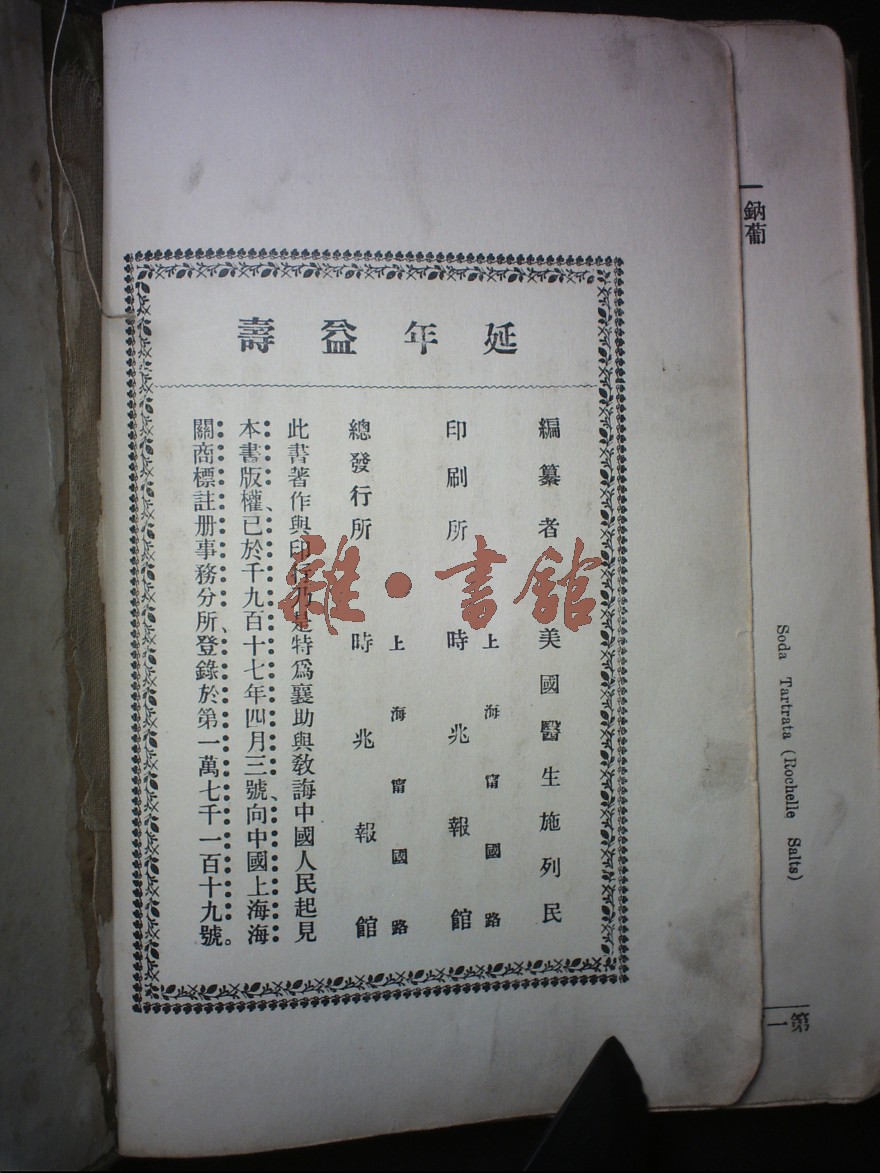 延年益壽
編纂者 美國醫生施列民
印刷所 上海甯國路 時兆報館
總發行所 上海甯國路 時兆報館
此書著作與印行乃是特爲襄助與教誨中國人民起見
本書版權、已於千九百十七年四月三號、向中國上海海
關商標註册事務分所、登錄於第一萬七千一百十九號。
雜·書館
鈉葡
Soda Tartrata (Rochelle Salts)
第一